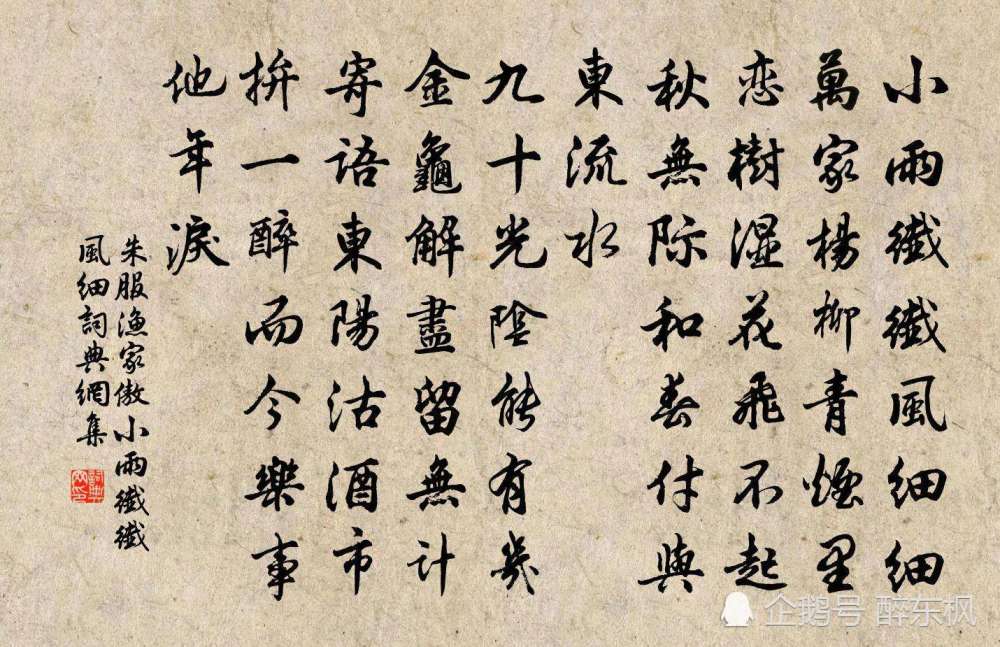 小雨纖纖風細細
萬家楊柳青煙里
恋樹湿花飛不起
秋無际和春付與
東流水
九十光陰能有幾
金龜解盡留無計
寄語東陽沽酒市
拚一醉而今樂事
他年淚
朱服漁家傲小雨纖纖
風細詞典網集
企鹅号 醉东枫